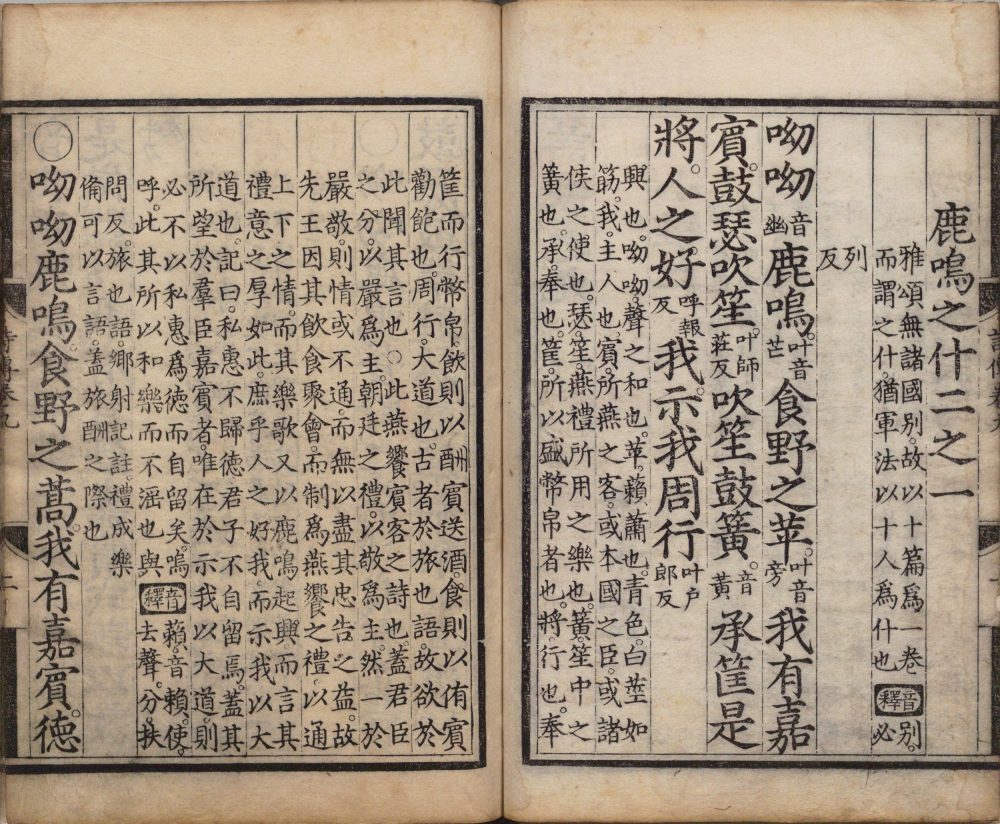 鹿鳴之什二之一
雅頌無諸國別。故以十篇爲一卷
而謂之什。猶軍法以十人爲什也 音釋 別。必
列反
呦呦音幽鹿鳴。叶音芒食野之苹。叶音旁我有嘉
賓。鼓瑟吹笙。叶師莊反吹笙鼓簧。音黃承筐是
將。人之好呼報反我。示我周行叶戶郎反
興也。呦呦。聲之和也。苹。藾蕭也。青色。白莖如
筯。我。主人也。賓。所燕之客。或本國之臣。或諸
侯之使也。瑟。笙。燕禮所用之樂也。簧。笙中之
簧也。承。奉也。筐。所以盛幣帛者也。將。行也。奉
筐而行幣帛。飲則以酬賓送酒。食則以侑賓
勸飽也。周行。大道也。古者於旅也語。故欲於
此聞其言也○此燕饗賓客之詩也。蓋君臣
之分。以嚴爲主。朝廷之禮。以敬爲主。然一於
嚴敬。則情或不通。而無以盡其忠告之益。故
先王因其飲食聚會。而制爲燕饗之禮。以通
上下之情。而其樂歌又以鹿鳴起興。而言其
禮意之厚如此。庶乎人之好我。而示我以大
道也。記曰。私惠不歸德。君子不自留焉。蓋其
所望於羣臣嘉賓者。唯在於示我以大道。則
必不以私惠爲德而自留矣。嗚
呼。此其所以和樂而不淫也與 音釋 藾。音賴。使。去聲。分。扶
問反。旅也語。鄉射記註。禮成樂
備。可以言語。蓋旅酬之際也
○呦呦鹿鳴。食野之蒿。我有嘉賓。德